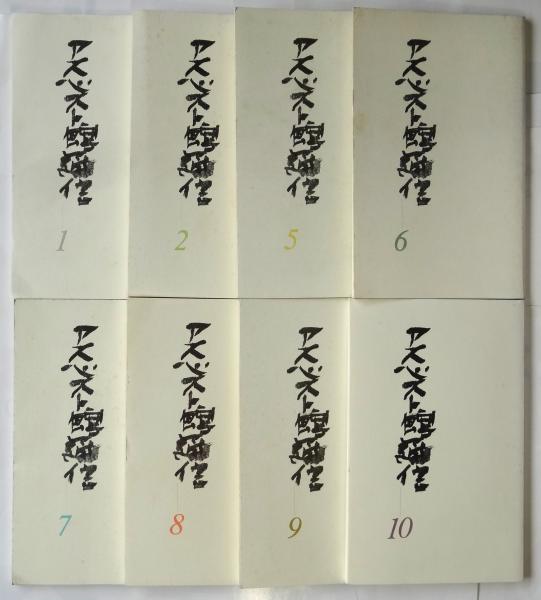 アスベスト館通信
1
アスベスト館通信
2
アスベスト館通信
5
アスベスト館通信
6
アスベスト館通信
7
アスベスト館通信
8
アスベスト館通信
9
アスベスト館通信
10